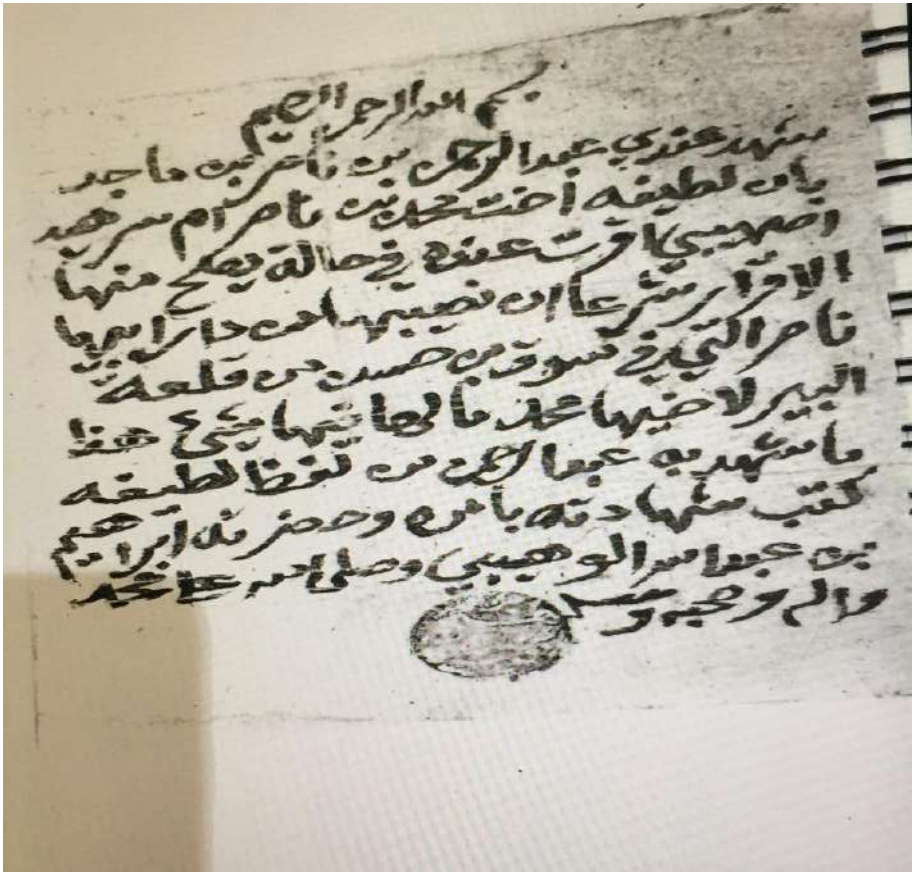 بسم الله الرحمن الرحيم
شهد عندي عبدالرحمن بن ناصر بن ماجد
بان لطيفه اخت محمد بن ناصر ام
اقرت عنده في حالة يصح منها
الاقرار شرعا ان نصيبها من دار ابيها
ناصر التي في سوق بن حسن من قلعة
البير لاخيها محمد ما لها فيها شيء هذا
ما شهد به عبدالرحمن من لفظ لطيفه
كتب شهادته بامره وحضرته ابراهيم
بن عبدالله الوهيبي وصلى الله على محمد
واله وصحبه وسلم